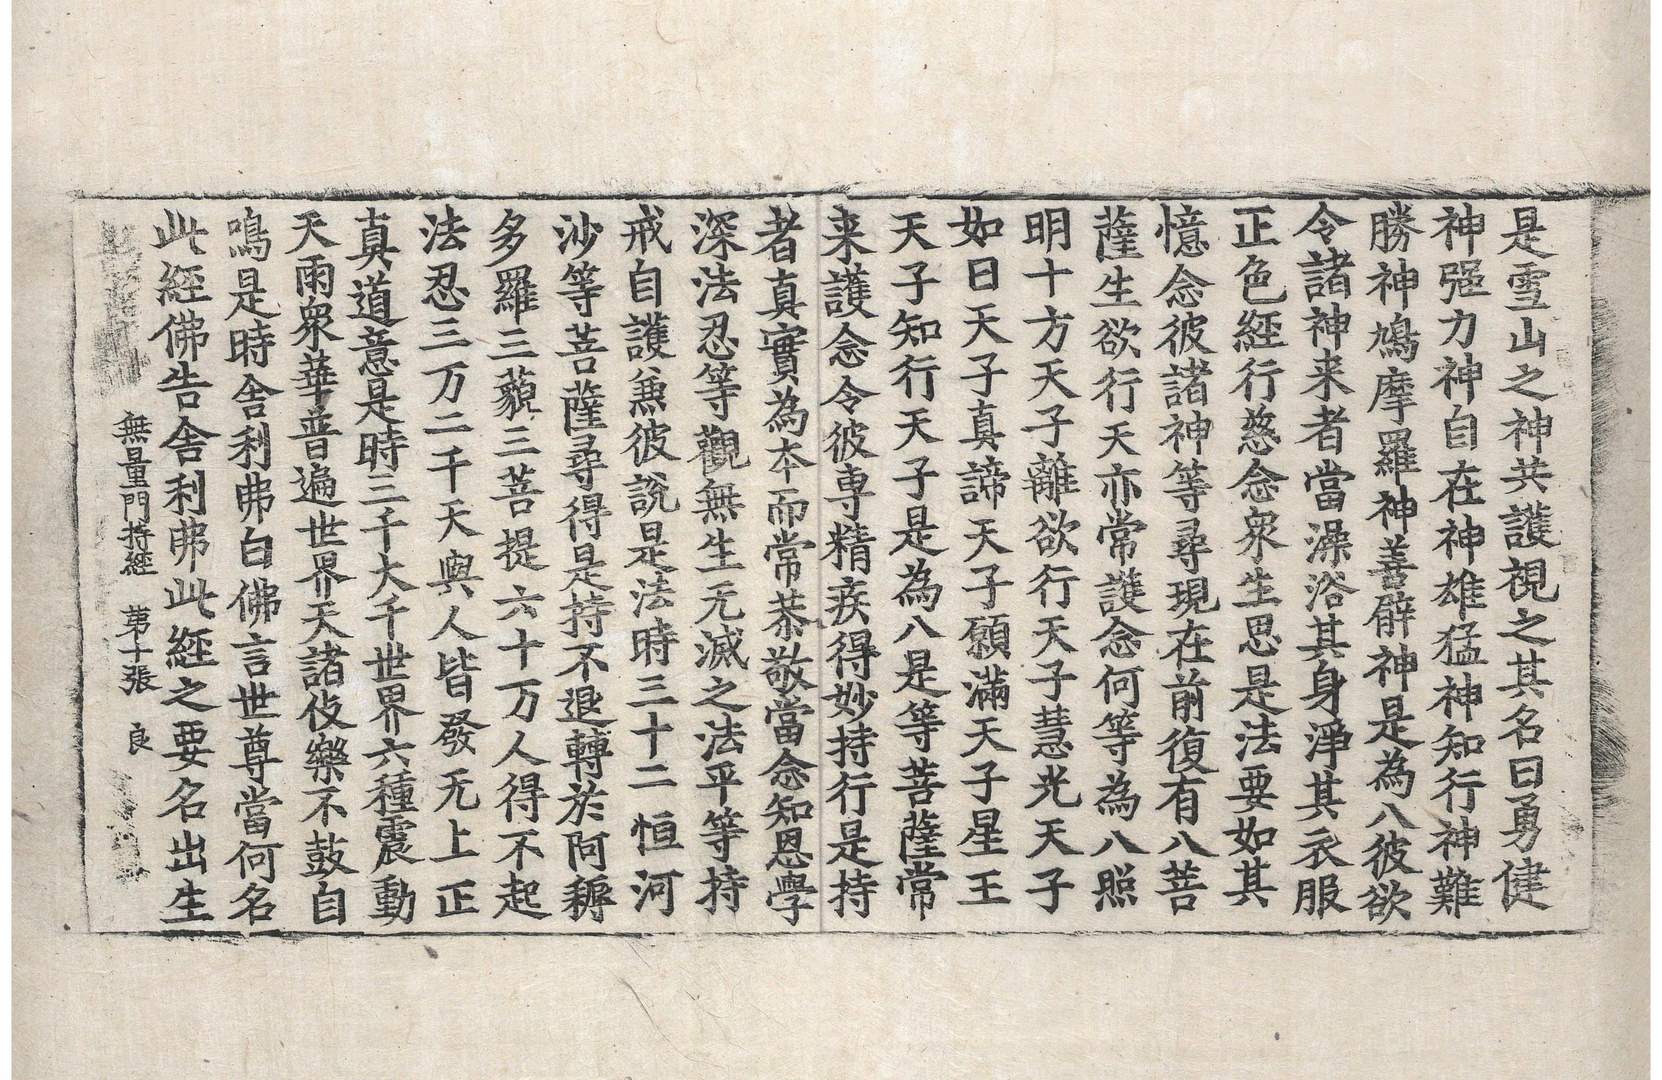 是雪山之神共護視之其名曰勇健
神强力神自在神雄猛神知行神難
勝神鳩摩羅神善臂神是為八彼欲
令諸神来者當澡浴其身淨其衣服
正色經行慈念衆生思是法要如其
憶念彼諸神等尋現在前復有八菩
薩生欲行天亦常護念何等為八照
明十方天子離欲行天子慧光天子
如日天子真諦天子願滿天子星王
天子知行天子是為八是等菩薩常
来護念令彼専精疾得妙持行是持
者真實為本而常恭敬當念知恩學
深法忍等觀無生无滅之法平等持
戒自護兼彼說是法時三十二恒河
沙等菩薩尋得是持不退轉於阿耨
多羅三藐三菩提六十万人得不起
法忍三万二千天與人皆發无上正
真道意是時三千大千世界六種震動
天雨衆華普遍世界天諸伎樂不鼓自
鳴是時舍利弗白佛言世尊當何名
此經佛告舍利弗此經之要名出生
無量門持經 苐十張 良